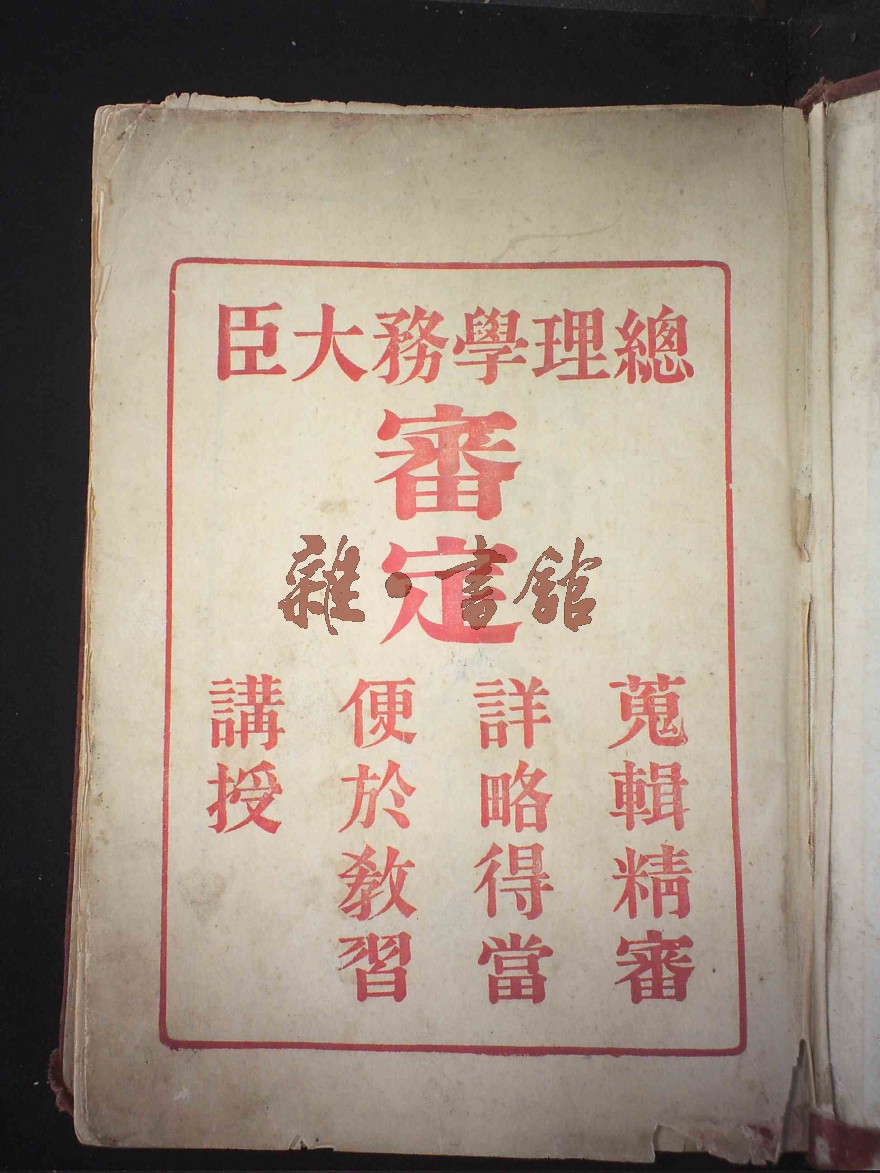 總理學務大臣
審定
蒐輯精審
詳略得當
便於教習
講授
雜·書館